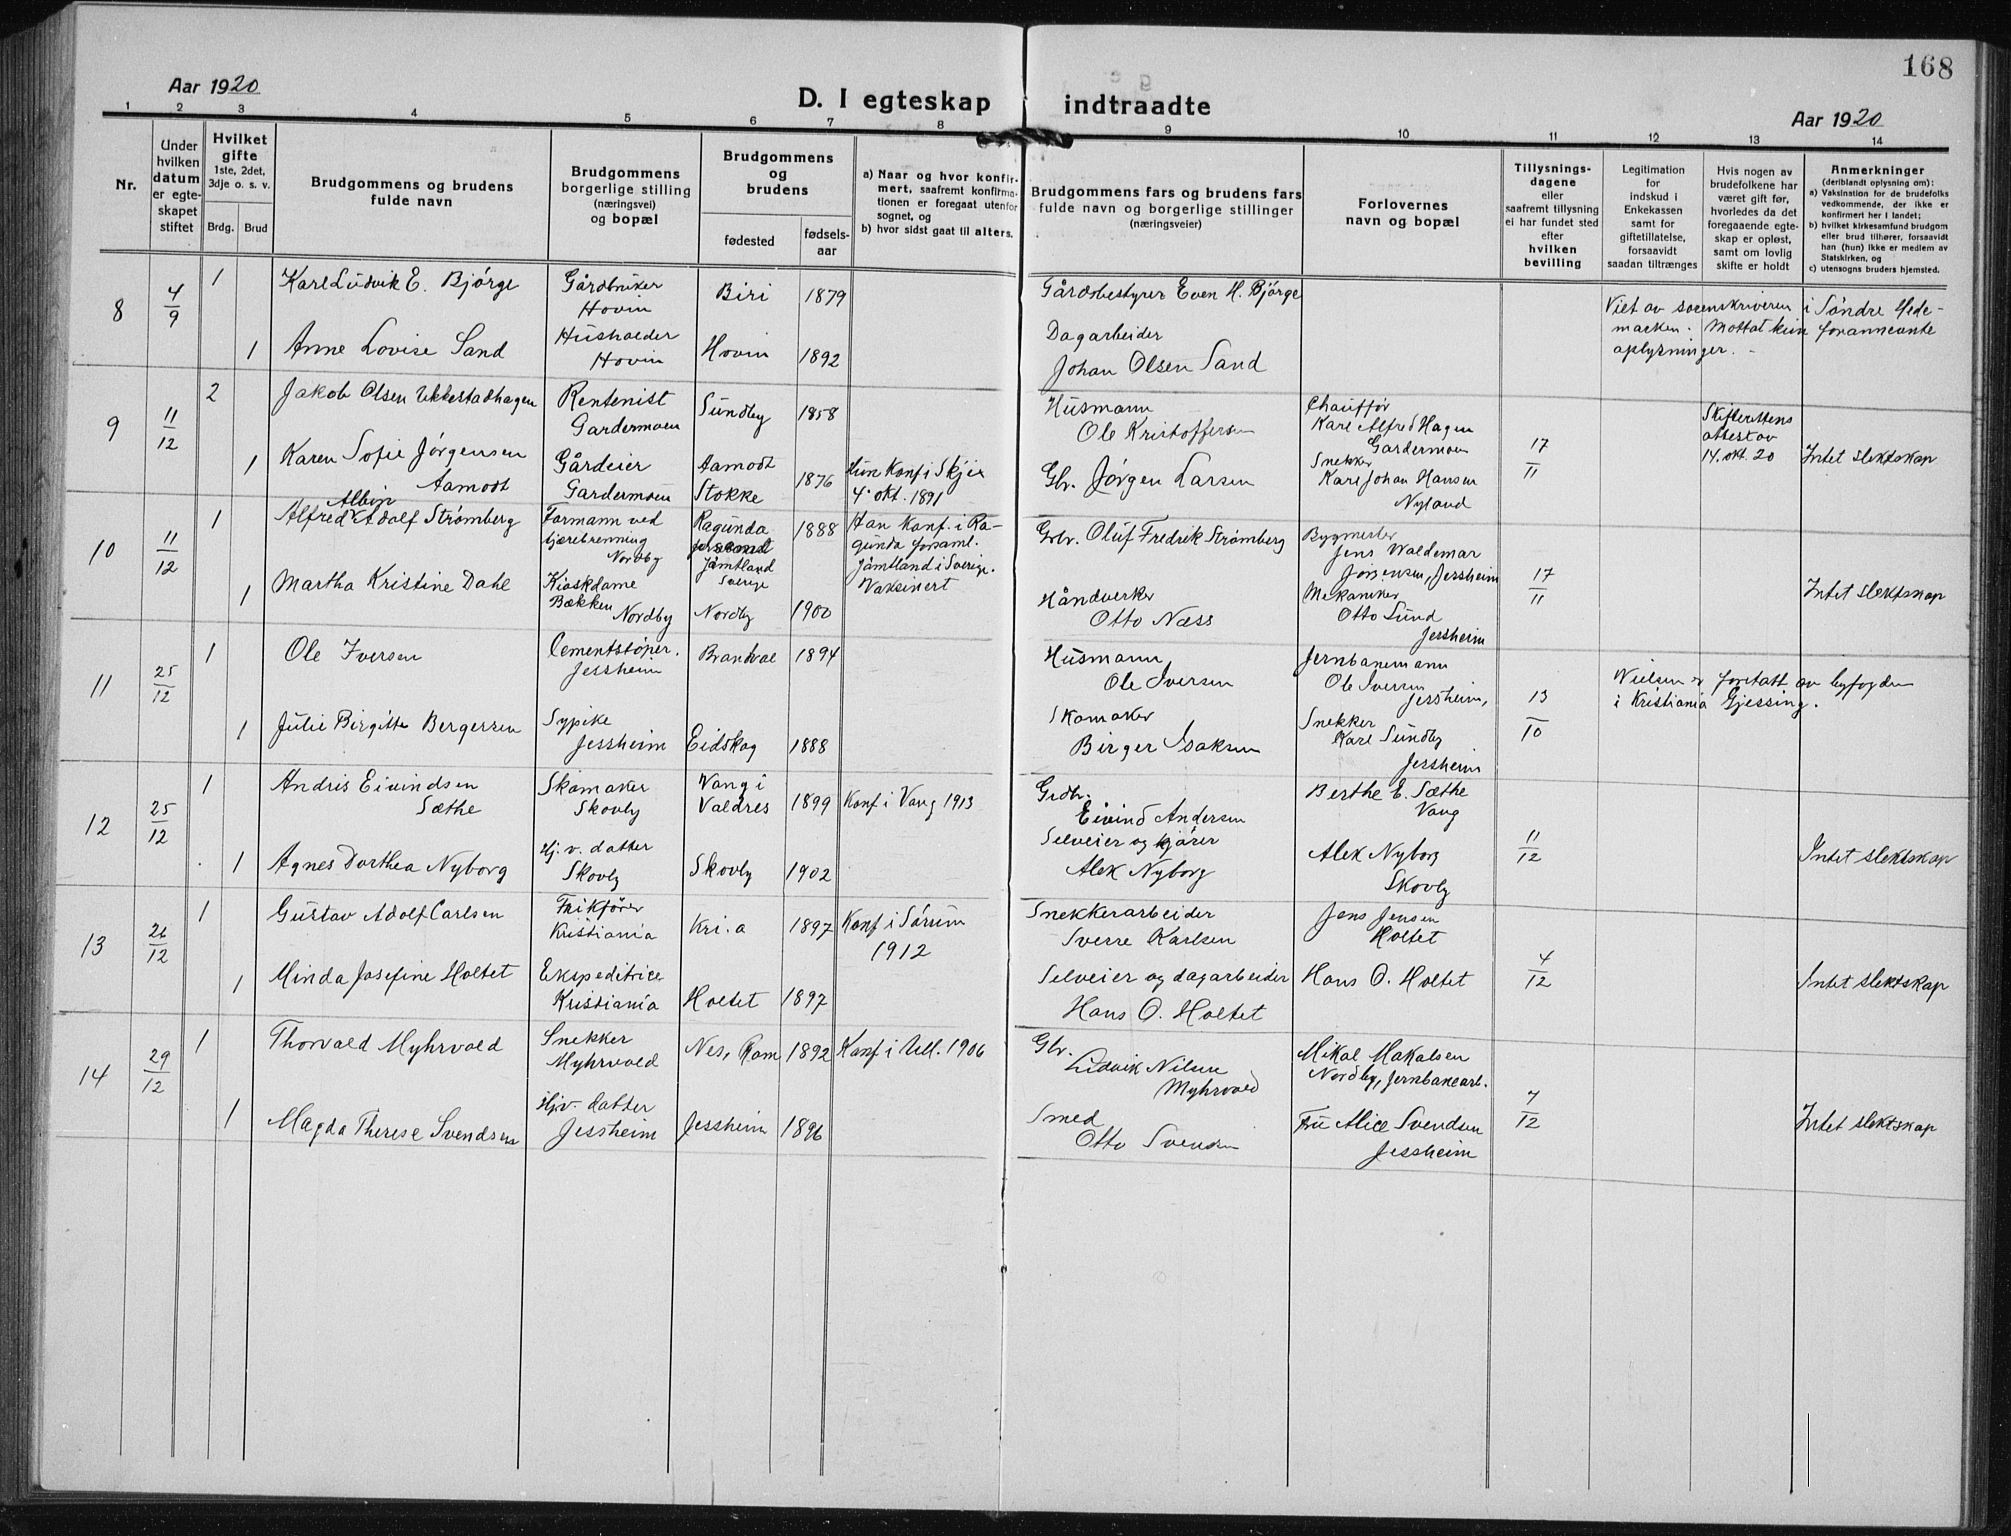 168
Aar 1920
D. I egteskap indtraadte
Aar 1920
1 2 3 4 5 6 7 8 9 10 11 12 13 14
Nr.
Under hvilken datum er egteskapet stiftet
Hvilket gifte
1ste, 2det, 3dje o. s. v.
Brdg. Brud
Brudgommens og brudens fulde navn
Brudgommens borgerlige stilling (næringsvei) og bopæl
Brudgommens og brudens
fødested
fødselsaar
a) Naar og hvor konfirmert, saafremt konfirmationen er foregaat utenfor sognet, og
b) hvor sidst gaat til alters.
Brudgommens fars og brudens fars fulde navn og borgerlige stillinger (næringsveier)
Forlovernes navn og bopæl
Tillysningsdagene eller saafremt tillysning ei har fundet sted efter hvilken bevilling
Legitimation for indskud i Enkekassen samt for giftetillatelse, forsaavidt saadan tiltrænges
Hvis nogen av brudefolkene har været gift før, hvorledes da det foregaaende egteskap er opløst, samt om lovlig skifte er holdt
Anmerkninger
(deriblandt oplysning om):
a) Vaksination for de brudefolks vedkommende, der ikke er konfirmert her i landet;
b) hvilket kirkesamfund brudgom eller brud tilhører, forsaavidt han (hun) ikke er medlem av Statskirken, og
c) utensogns bruders hjemsted.
8
4/9
1
Karl Ludvik E. Bjørge
Gårdbruker
Hovin
Biri
1879
Gårdsbestyrer Even H. Bjørge
Viet av sorenskriveren i Søndre Hedemarken. Mottat kun forannevnte oplysninger.
1
Anne Lovise Sand
Husholder
Hovin
Hovin
1892
Dagarbeider
Johan Olsen Sand
9
11/12
2
Jakob Olsen Ukkestadhagen
Rentenist
Gardermoen
Sundby
1858
Husmann
Ole Kristoffersen
Chauffør
Karl Alfred Hagen
Gardermoen
17/11
Skifterettens
attest av
14. okt. 20
Intet slektskap
1
Karen Sofie Jørgensen
Aamodt
Gårdeier
Gardermoen
Aamodt
Stokke
1876
Hun Konf i Skjee
4. okt. 1891
Gbr. Jørgen Larsen
Snekker
Karl Johan Hansen
Nyland
10
11/12
1
Albin
Alfred Adolf Strømberg
Formann ved
tjærebrenning
Nordby
Ragunda
Jämtland
Sverige
1888
Han Konf. i Ragunda forsaml.
Jämtland i Sverige.
Vaksinert
Grbr. Oluf Fredrik Strømberg
Bygmester
Jens Waldemar
Jørgensen, Jessheim
17/11
Intet slektskap
1
Martha Kristine Dahl
Kioskdame
Bækken
Nordby
Nordby
1900
Håndverker
Otto Næss
Mekaniker
Otto Sund
Jessheim
11
25/12
1
Ole Iversen
Cementstøper.
Jessheim
Brandval
1894
Husmann
Ole Iversen
Jernbanemann
Ole Iversen
Jessheim,
13/10
Vielsen er foretatt av byfogden
i Kristiania Gjessing.
1
Julie Birgitte Bergersen
Sypike
Jessheim
Eidskog
1888
Skomaker
Birger Isaksen
Snekker
Karl Sundby
Jessheim
12
25/12
1
Andris Eivindsen
Sæthe
Skomaker
Skovly
Vang i
Valdres
1899
Konf i Vang 1913
Grdbr.
Eivind Andersen
Berthe E. Sæthe
Vang
11/12
Intet slektskap
1
Agnes Dorthea Nyborg
Hj. v. datter
Skovly
Skovly
1902
Selveier og kjører
Alek Nyborg
Alek Nyborg
Skovly
13
26/12
1
Gustav Adolf Carlsen
Trikfører
Kristiania
Kri.a
1897
Konf i Sørum
1912
Snekkerarbeider
Sverre Karlsen
Jens Jensen
Holtet
4/12
Intet slektskap
1
Minda Josefine Holtet
Ekspeditrice
Kristiania
Holtet
1897
Selveier og dagarbeider
Hans O. Holtet
Hans O. Holtet
14
29/12
1
Thorvald Myhrvold
Snekker
Myhrvold
Nes, Rom
1892
Konf i Ull. 1906
Gbr.
Ludvik Nilsen
Myhrvold
Mikal Makalsen
Nordby, jernbanearb.
7/12
Intet slektskap
1
Magda Therese Svendsen
Hjv. datter
Jessheim
Jessheim
1896
Smed
Otto Svendsen
Fru Alice Svendsen
Jessheim